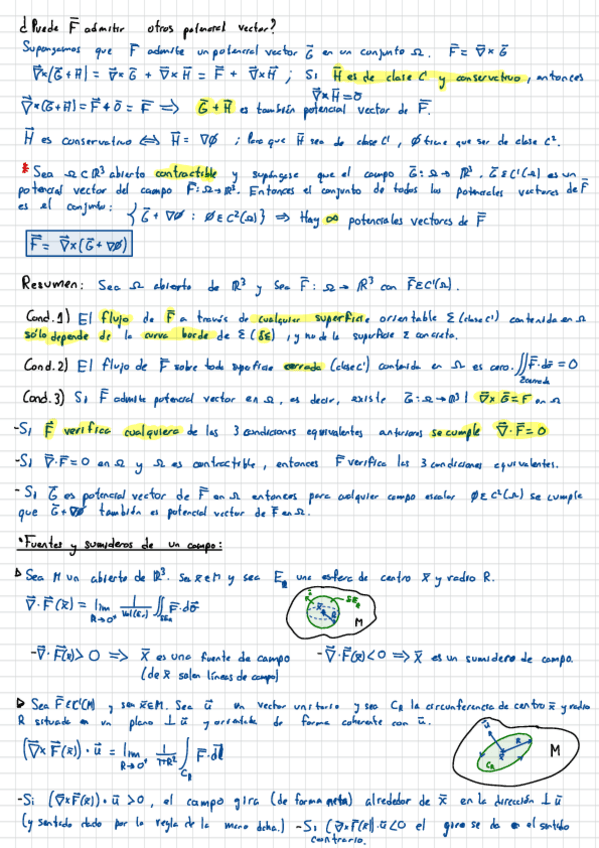 ¿Puede F⃗ admitir otros potencial vector?
Supongamos que F⃗ admite un potencial vector G⃗ en un conjunto Ω. F⃗ = ∇⃗×G⃗
∇⃗×(G⃗+H⃗) = ∇⃗×G⃗ + ∇⃗×H⃗ = F⃗ + ∇⃗×H⃗ ; Si H⃗ es de clase C¹ y conservativo, entonces
∇⃗×H⃗=0⃗
∇⃗×(G⃗+H⃗) = F⃗+0⃗ = F⃗ ⟹ G⃗+H⃗ es también potencial vector de F⃗.
H⃗ es conservativo ⟺ H⃗ = ∇⃗Ø ; Para que H⃗ sea de clase C¹, Ø tiene que ser de clase C².
* Sea Ω⊂ℝ³ abierto contractible y supóngase que el campo G⃗: Ω→ℝ³, G⃗∈C¹(Ω) es un
potencial vector del campo F⃗: Ω→ℝ³. Entonces el conjunto de todos los potenciales vectores de F⃗
es el conjunto: {G⃗ + ∇Ø : Ø∈C²(Ω)} ⟹ Hay ∞ potenciales vectores de F⃗
F⃗ = ∇⃗×(G⃗+∇Ø)
Resumen: Sea Ω abierto de ℝ³ y Sea F⃗: Ω→ℝ³ con F⃗∈C¹(Ω).
Cond. 1) El flujo de F⃗ a través de cualquier superficie orientable Σ (clase C¹) contenida en Ω
sólo depende de la curva borde de Σ (δΣ), y no de la superficie Σ concreta.
Cond. 2) El flujo de F⃗ sobre toda superficie cerrada (clase C¹) contenida en Ω es cero. ∬F⃗·dσ⃗ = 0
Σ cerrada
Cond. 3) Si F⃗ admite potencial vector en Ω, es decir, existe G⃗: Ω→ℝ³ | ∇⃗×G⃗=F⃗ en Ω
-Si F⃗ verifica cualquiera de las 3 condiciones equivalentes anteriores se cumple ∇⃗·F⃗=0
-Si ∇⃗·F⃗=0 en Ω y Ω es contractible, entonces F⃗ verifica las 3 condiciones equivalentes.
-Si G⃗ es potencial vector de F⃗ en Ω entonces para cualquier campo escalar Ø∈C²(Ω) se cumple
que G⃗+∇Ø también es potencial vector de F⃗ en Ω.
•Fuentes y sumideros de un campo:
▷ Sea M un abierto de ℝ³. Sea x̄∈M y sea E_R una esfera de centro x̄ y radio R.
∇⃗·F⃗(x̄) = lim R→0⁺ 1/Vol(E_R) ∬δE_R F⃗·dσ⃗
δE_R
x̄ R M
-∇⃗·F⃗(x̄) > 0 ⟹ x̄ es una fuente de campo -∇⃗·F⃗(x̄) < 0 ⟹ x̄ es un sumidero de campo.
(de x̄ salen líneas de campo)
▷ Sea F⃗∈C¹(M) y sea x̄∈M. Sea u⃗ un vector unitario y sea C_R la circunferencia de centro x̄ y radio
R situada en un plano ⊥ u⃗ y orientada de forma coherente con u⃗.
(∇⃗×F⃗(x̄))·u⃗ = lim R→0⁺ 1/πR² ∫C_R F⃗·dl⃗
u⃗ R M
x̄
C_R
-Si (∇⃗×F⃗(x̄))·u⃗ > 0, el campo gira (de forma neta) alrededor de x̄ en la dirección ⊥ u⃗
(y sentido dado por la regla de la mano dcha.) -Si (∇⃗×F⃗(x̄))·u⃗ < 0 el giro se da en el sentido
contrario.